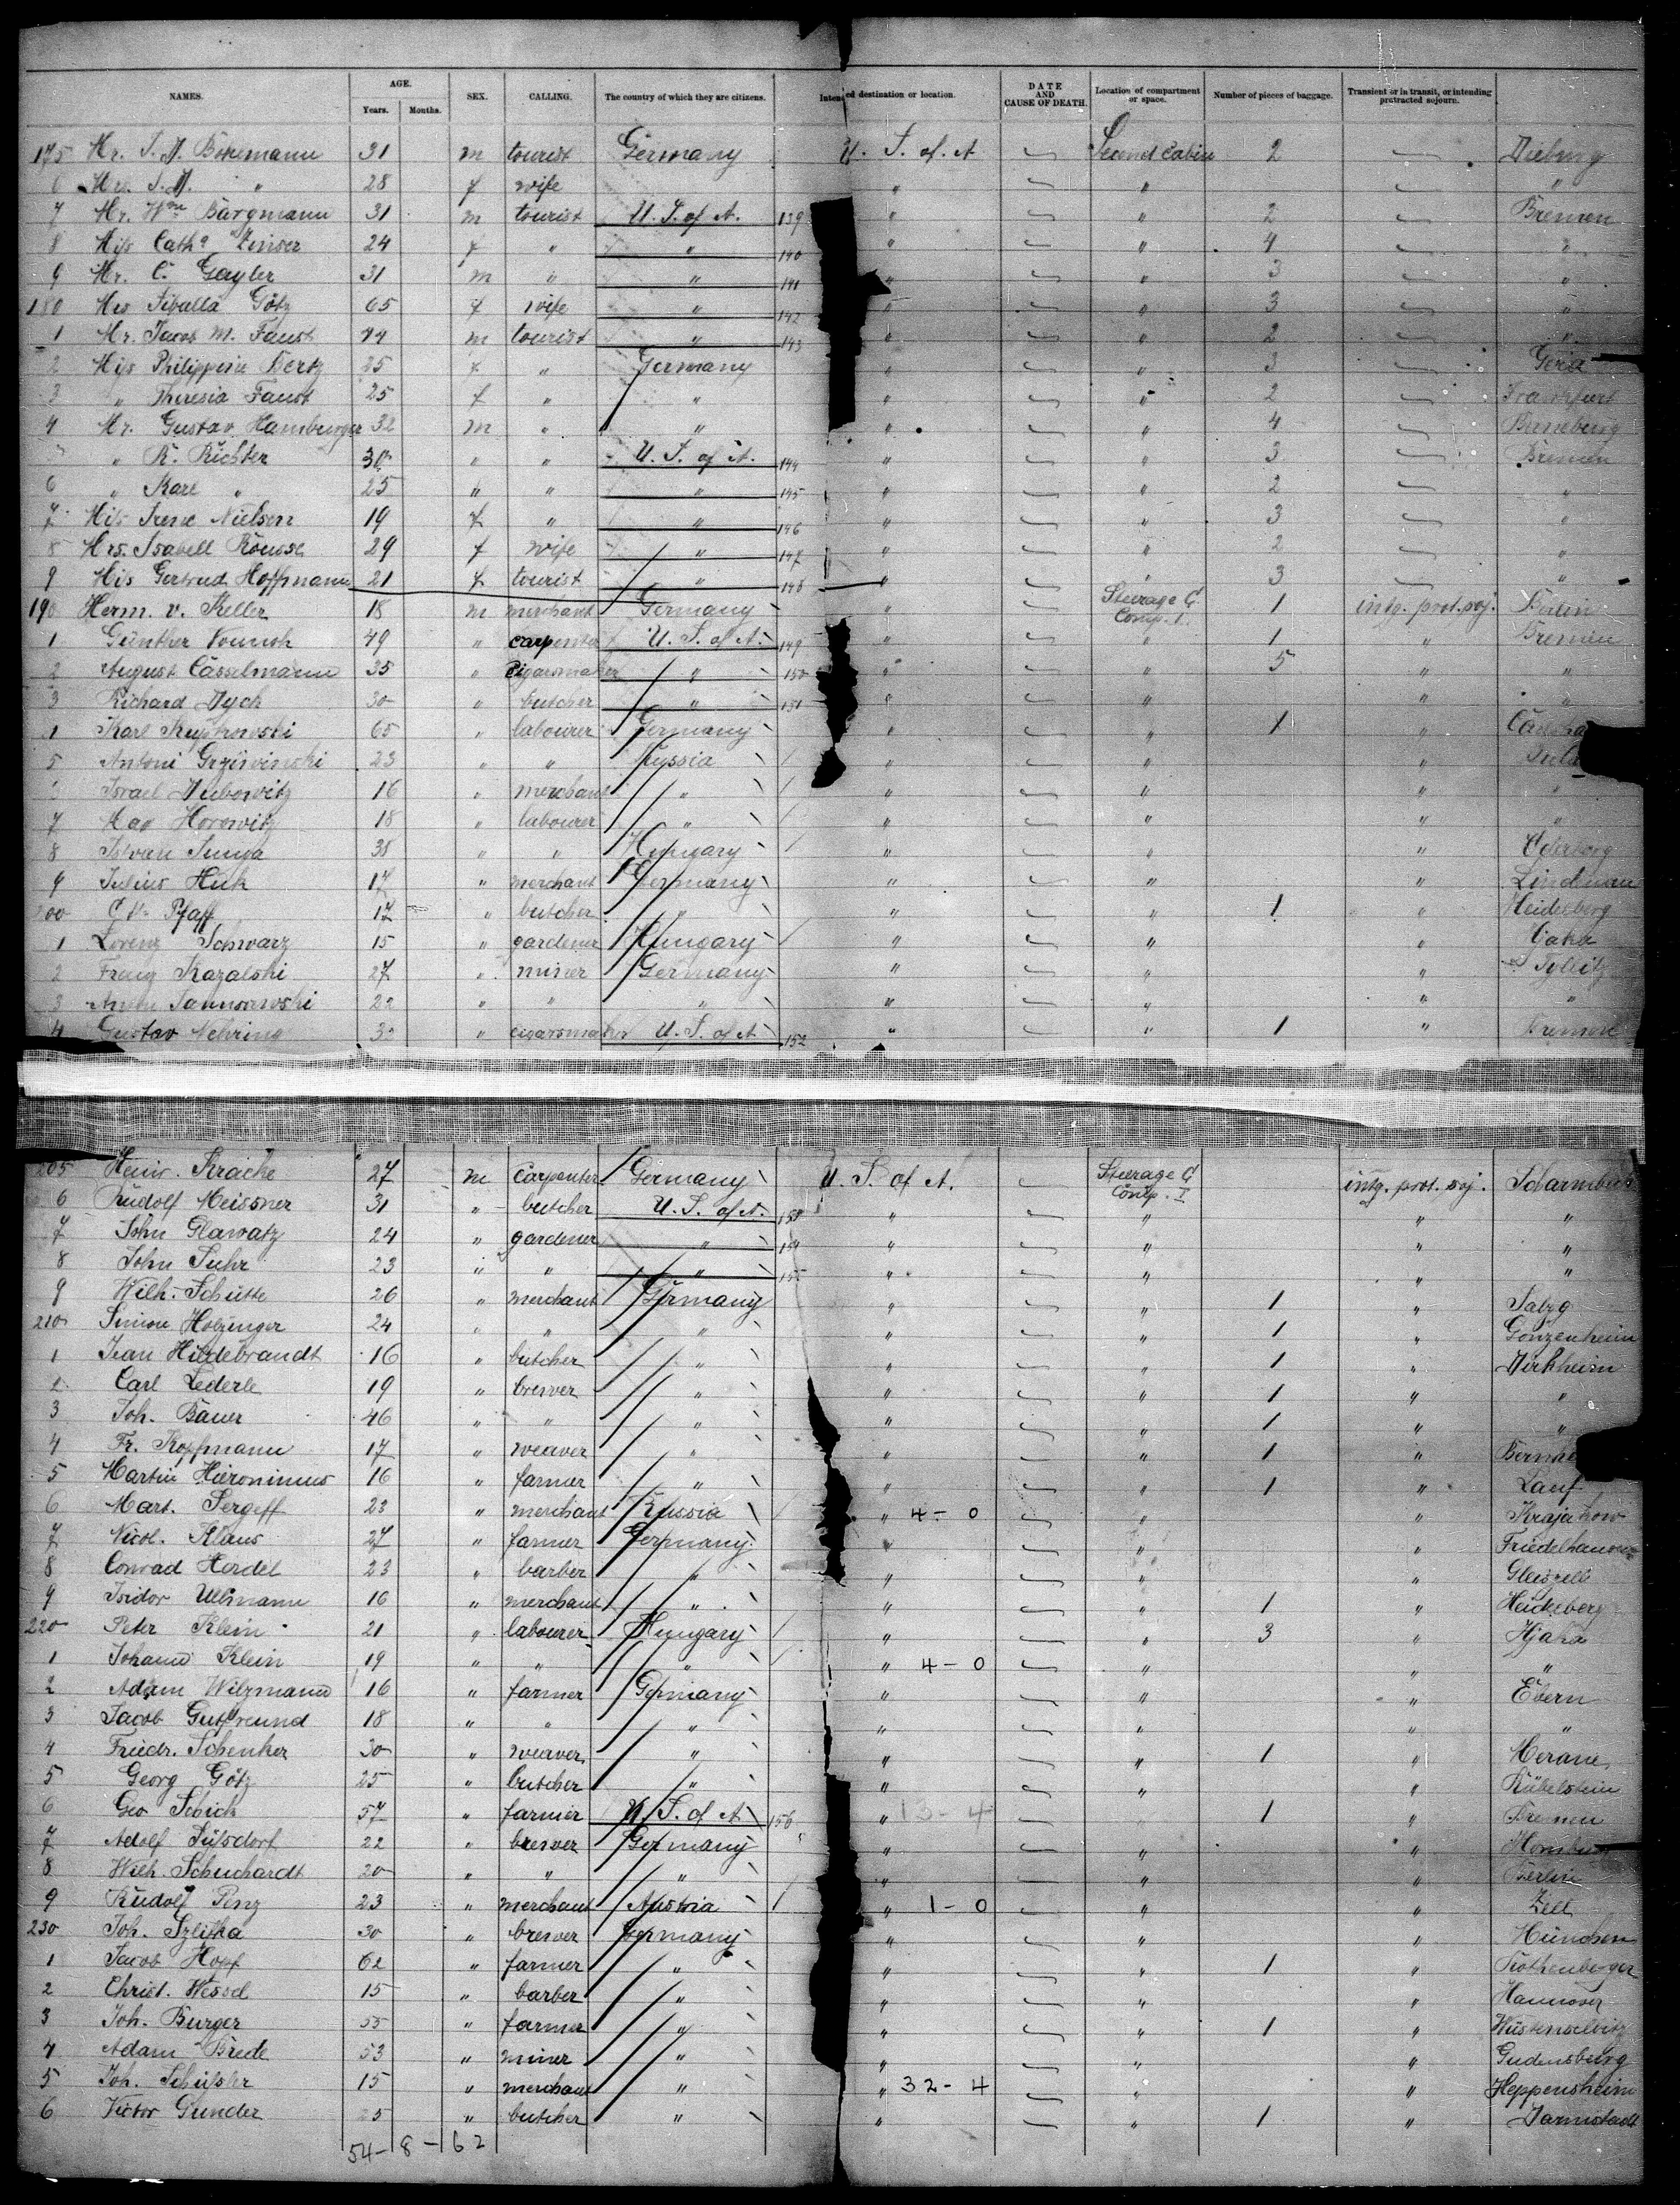 NAMES. AGE. Years. Months. SEX. CALLING. The country of which they are citizens. Intended destination or location. DATE AND CAUSE OF DEATH. Location of compartment or space. Number of pieces of baggage. Transient or in transit, or intending protracted sojourn.
175 Mr. S. A. Bohemann 31 m tourist Germany U. S. of A. Second Cabin 2 Dieburg
6 Mrs. S. A. " 28 f wife " " "
7 Mr. Wm Bargmann 31 m tourist U. S. of A. 139 " " 2 Bremen
8 Miss Catha Zinser 24 f " " 140 " " 4 "
9 Mr. C. Gayler 31 m " " 141 " " 3 "
180 Mrs Siballa Götz 65 f wife " 142 " " 3 "
1 Mr. Jacob M. Faust 44 m tourist " 143 " " 2 "
2 Miss Philippine Bertz 25 f " Germany " " 3 Gera
3 " Theresia Faust 25 f " " " " 2 Frankfurt
4 Mr. Gustav Hamburger 32 m " " " " 4
" R. Richter 30 " " U. S. of A. 144 " " 3 Bremen
6 " Karl " 25 " " " 145 " " 2 "
7 Miss Irene Nielsen 19 f " " 146 " " 3 "
8 Mrs. Isabell Rousse 29 f wife " 147 " " 2 "
9 Miss Gertrud Hoffmann 21 f tourist " 148 " " 3 "
190 Herm. v. Keller 18 m merchant Germany " Steerage G Comp. I. 1 intg. prot. soj. Berlin
1 Günther 49 " carpenter U. S. of A. 149 " " 1 " Bremen
2 August Casselmann 35 " cigarsmaker " 150 " " 5 " "
3 Richard Dyck 30 " butcher " 151 " " " "
Karl 65 " labourer Germany " " 1 "
5 Antoni 23 " " Russia " " "
Israel Dubowitz 16 " merchant " " " " "
7 Max Horowitz 18 " labourer " " " " "
8 Istvan 38 " " Hungary " " " Oderberg
9 Julius Huk 17 " merchant Germany " " " Lindenau
200 Pfaff 17 " butcher " " " 1 " Heidelberg
1 Lorenz Schwarz 15 " gardener Hungary " " "
2 Franz Kazalski 27 " miner Germany " " "
3 22 " " " " " " "
4 Gustav Nehring 33 " cigarsmaker U. S. of A. 152 " " 1 " Bremen
205 Heinr. Krache 27 m carpenter Germany U. S. of A. Steerage G Comp. I intg. prot. soj. Scharmbeck
6 Rudolf Meissner 31 " butcher U. S. of A. 153 " " " "
7 John Glawatz 24 " gardener " 154 " " " "
8 John Suhr 23 " " " 155 " " " "
9 Wilh. Schütte 26 " merchant Germany " " 1 "
210 Simon Holzinger 24 " " " " " 1 " Gonzenheim
1 Jean Hildebrandt 16 " butcher " " " 1 " Dirkheim
2 Carl Lederle 19 " brewer " " " 1 " "
3 Joh. Bauer 46 " " " " " 1 " "
4 Fr. Kopfmann 17 " weaver " " " 1 "
5 Martin Hieronimus 16 " farmer " " " 1 " Lauf
6 Mart. Sergeff 23 " merchant Russia " 4 - 0 " " Krajakow
7 Nicol. Klaus 27 " farmer Germany " " " Friedelhausen
8 Conrad Herdel 23 " barber " " " "
9 Isidor Ullmann 16 " merchant " " " 1 " Heidelberg
220 Peter Klein 21 " labourer Hungary " " 3 "
1 Johann Klein 19 " " " " 4 - 0 " " "
2 Adam Wilzmann 16 " farmer Germany " " " Ebern
3 Jacob Gutfreund 18 " " " " " " "
4 Friedr. Schenker 30 " weaver " " " 1 " Merane
5 Georg Götz 25 " butcher " " " "
6 Geo Schick 57 " farmer U. S. of A. 156 " 13 - 4 " 1 " Bremen
7 Adolf Süssdorf 22 " brewer Germany " " "
8 Wilh. Schuchardt 20 " " " " " " Berlin
9 Rudolf Penz 23 " merchant Austria " 1 - 0 " " Zell
230 Joh. 30 " brewer Germany " " " München
1 Jacob Hopf 62 " farmer " " " 1 "
2 Christ. Wessel 15 " barber " " " " Hannover
3 Joh. Burger 55 " farmer " " " 1 " Wüstenselbitz
4 Adam Brede 53 " miner " " " " Gudensberg
5 Joh. Schüssler 15 " merchant " " 32 - 4 " " Heppensheim
6 Victor Gunder 25 " butcher " " " 1 " Darmstadt
54 - 8 - 62